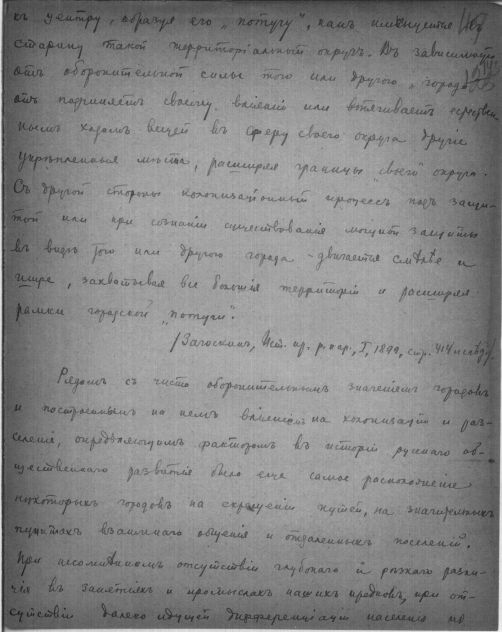 къ центру, образуя его „потугу", какъ именуется въ
старину такой территоріальный округъ. Въ зависимости
отъ оборонительной силы того или другого „города"
онъ подчиняетъ своему вліянію или втягиваетъ естествен-
нымъ ходомъ вещей въ сферу своего округа другіе
укрѣпленныя мѣста, расширяя границы „своего" округа.
Съ другой стороны колонизаціонный процессъ подъ защи-
той или при сознаніи существованія мощной защиты
въ видѣ того или другого города двигается смѣлѣе и
шире, захватывая все большія территоріи и расширяя
рамки городской „потуги".
/Загоскинъ, Ист. пр. р. нар., I, 1899, стр. 414
Рядомъ съ чисто оборонительнымъ значеніемъ городовъ
и построеннымъ на немъ вліяніемъ на колонизацію и раз-
селеніе, опредѣляющимъ факторомъ въ исторіи русскаго об-
щественнаго развитія было еще самое расположеніе
нѣкоторыхъ городовъ на скрещеніи путей, на значительныхъ
пунктахъ взаимнаго общенія и отдаленныхъ поселеній.
При несомнѣнномъ отсутствіи глубокаго и рѣзкаго разли-
чія въ занятіяхъ и промыслахъ нашихъ предковъ, при от-
сутствіи далеко идущей дифференціаціи населенія по